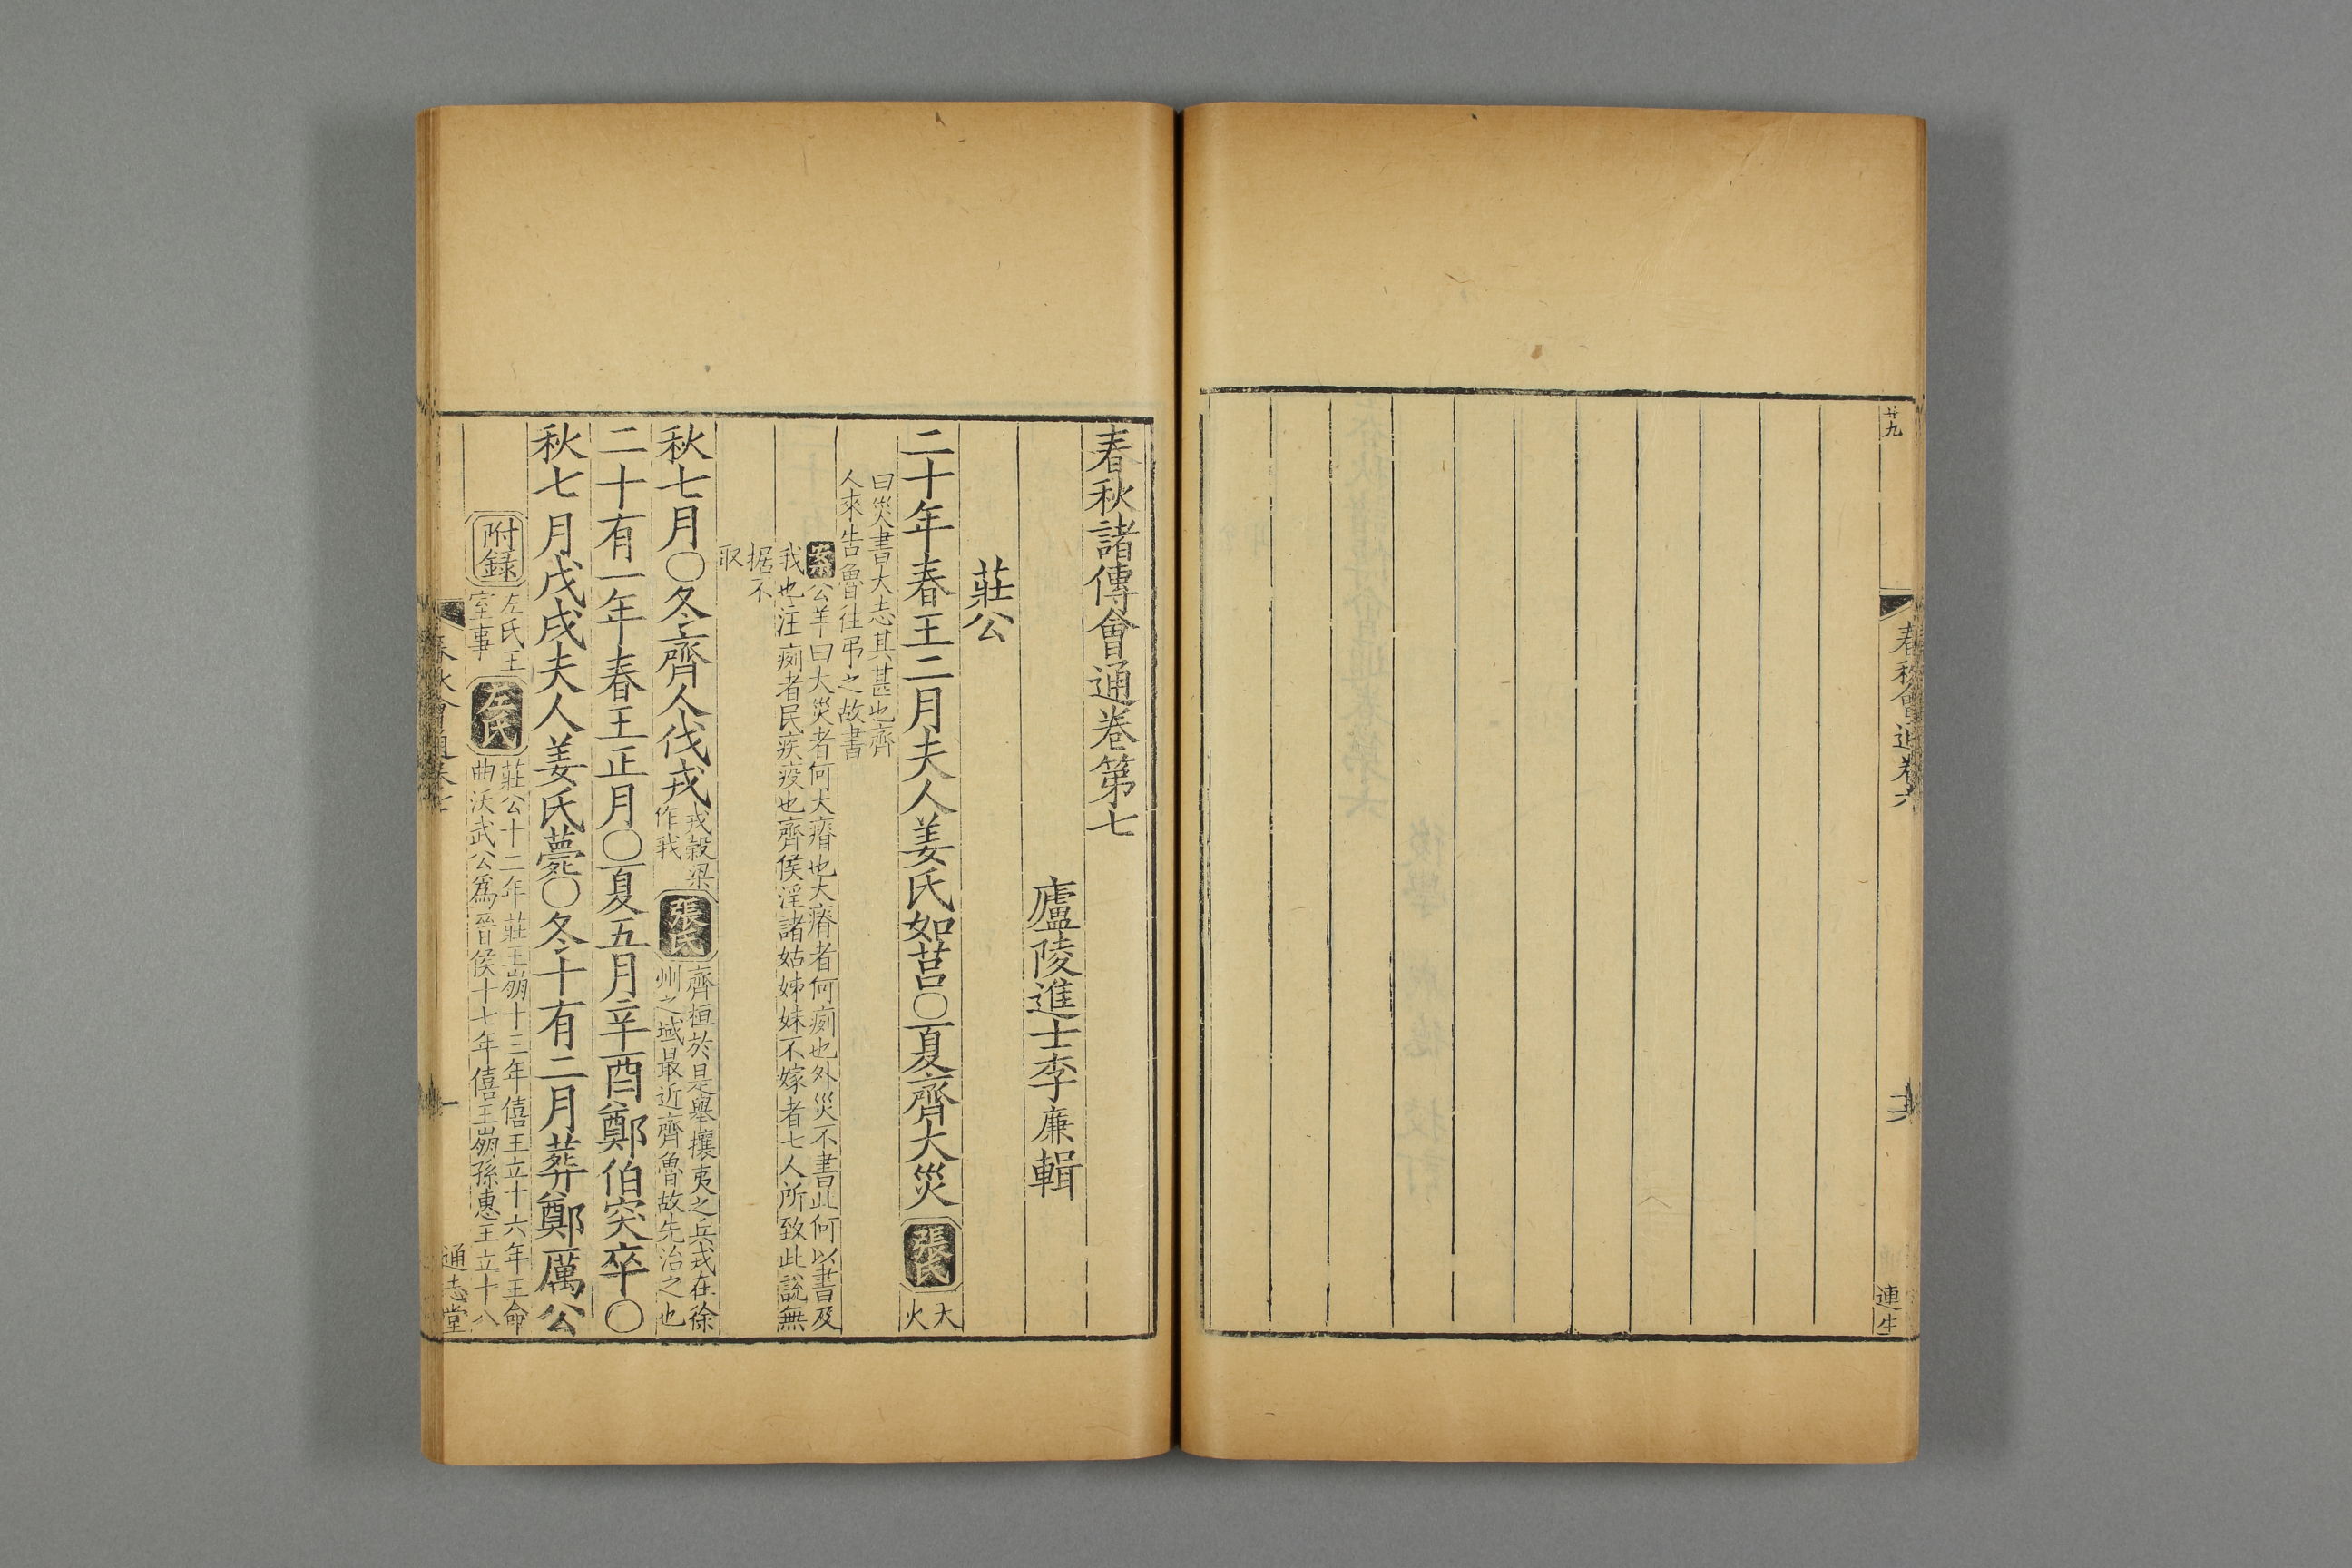 廿九
春秋會通卷六
連生
春秋諸傳會通卷第七
廬陵進士李廉輯
莊公
二十年春王二月夫人姜氏如莒〇夏齊大災張氏大
火
曰災書大志其甚也齊
人來告魯往弔之故書
案公羊曰大災者何大瘠也大瘠者何㾐也外災不書此何以書及
我也注㾐者民疾疫也齊侯淫諸姑姊妹不嫁者七人所致此說無
据不
取
秋七月〇冬齊人伐戎戎穀梁
作我張氏齊桓於是舉攘夷之兵戎在徐
州之域最近齊魯故先治之也
二十有一年春王正月〇夏五月辛酉鄭伯突卒〇
秋七月戊戌夫人姜氏薨〇冬十有二月葬鄭厲公
附録左氏王
室事左氏莊公十二年莊王崩十三年僖王立十六年王命
曲沃武公爲晉侯十七年僖王崩孫惠王立十八
春秋會通卷七
一
通志堂